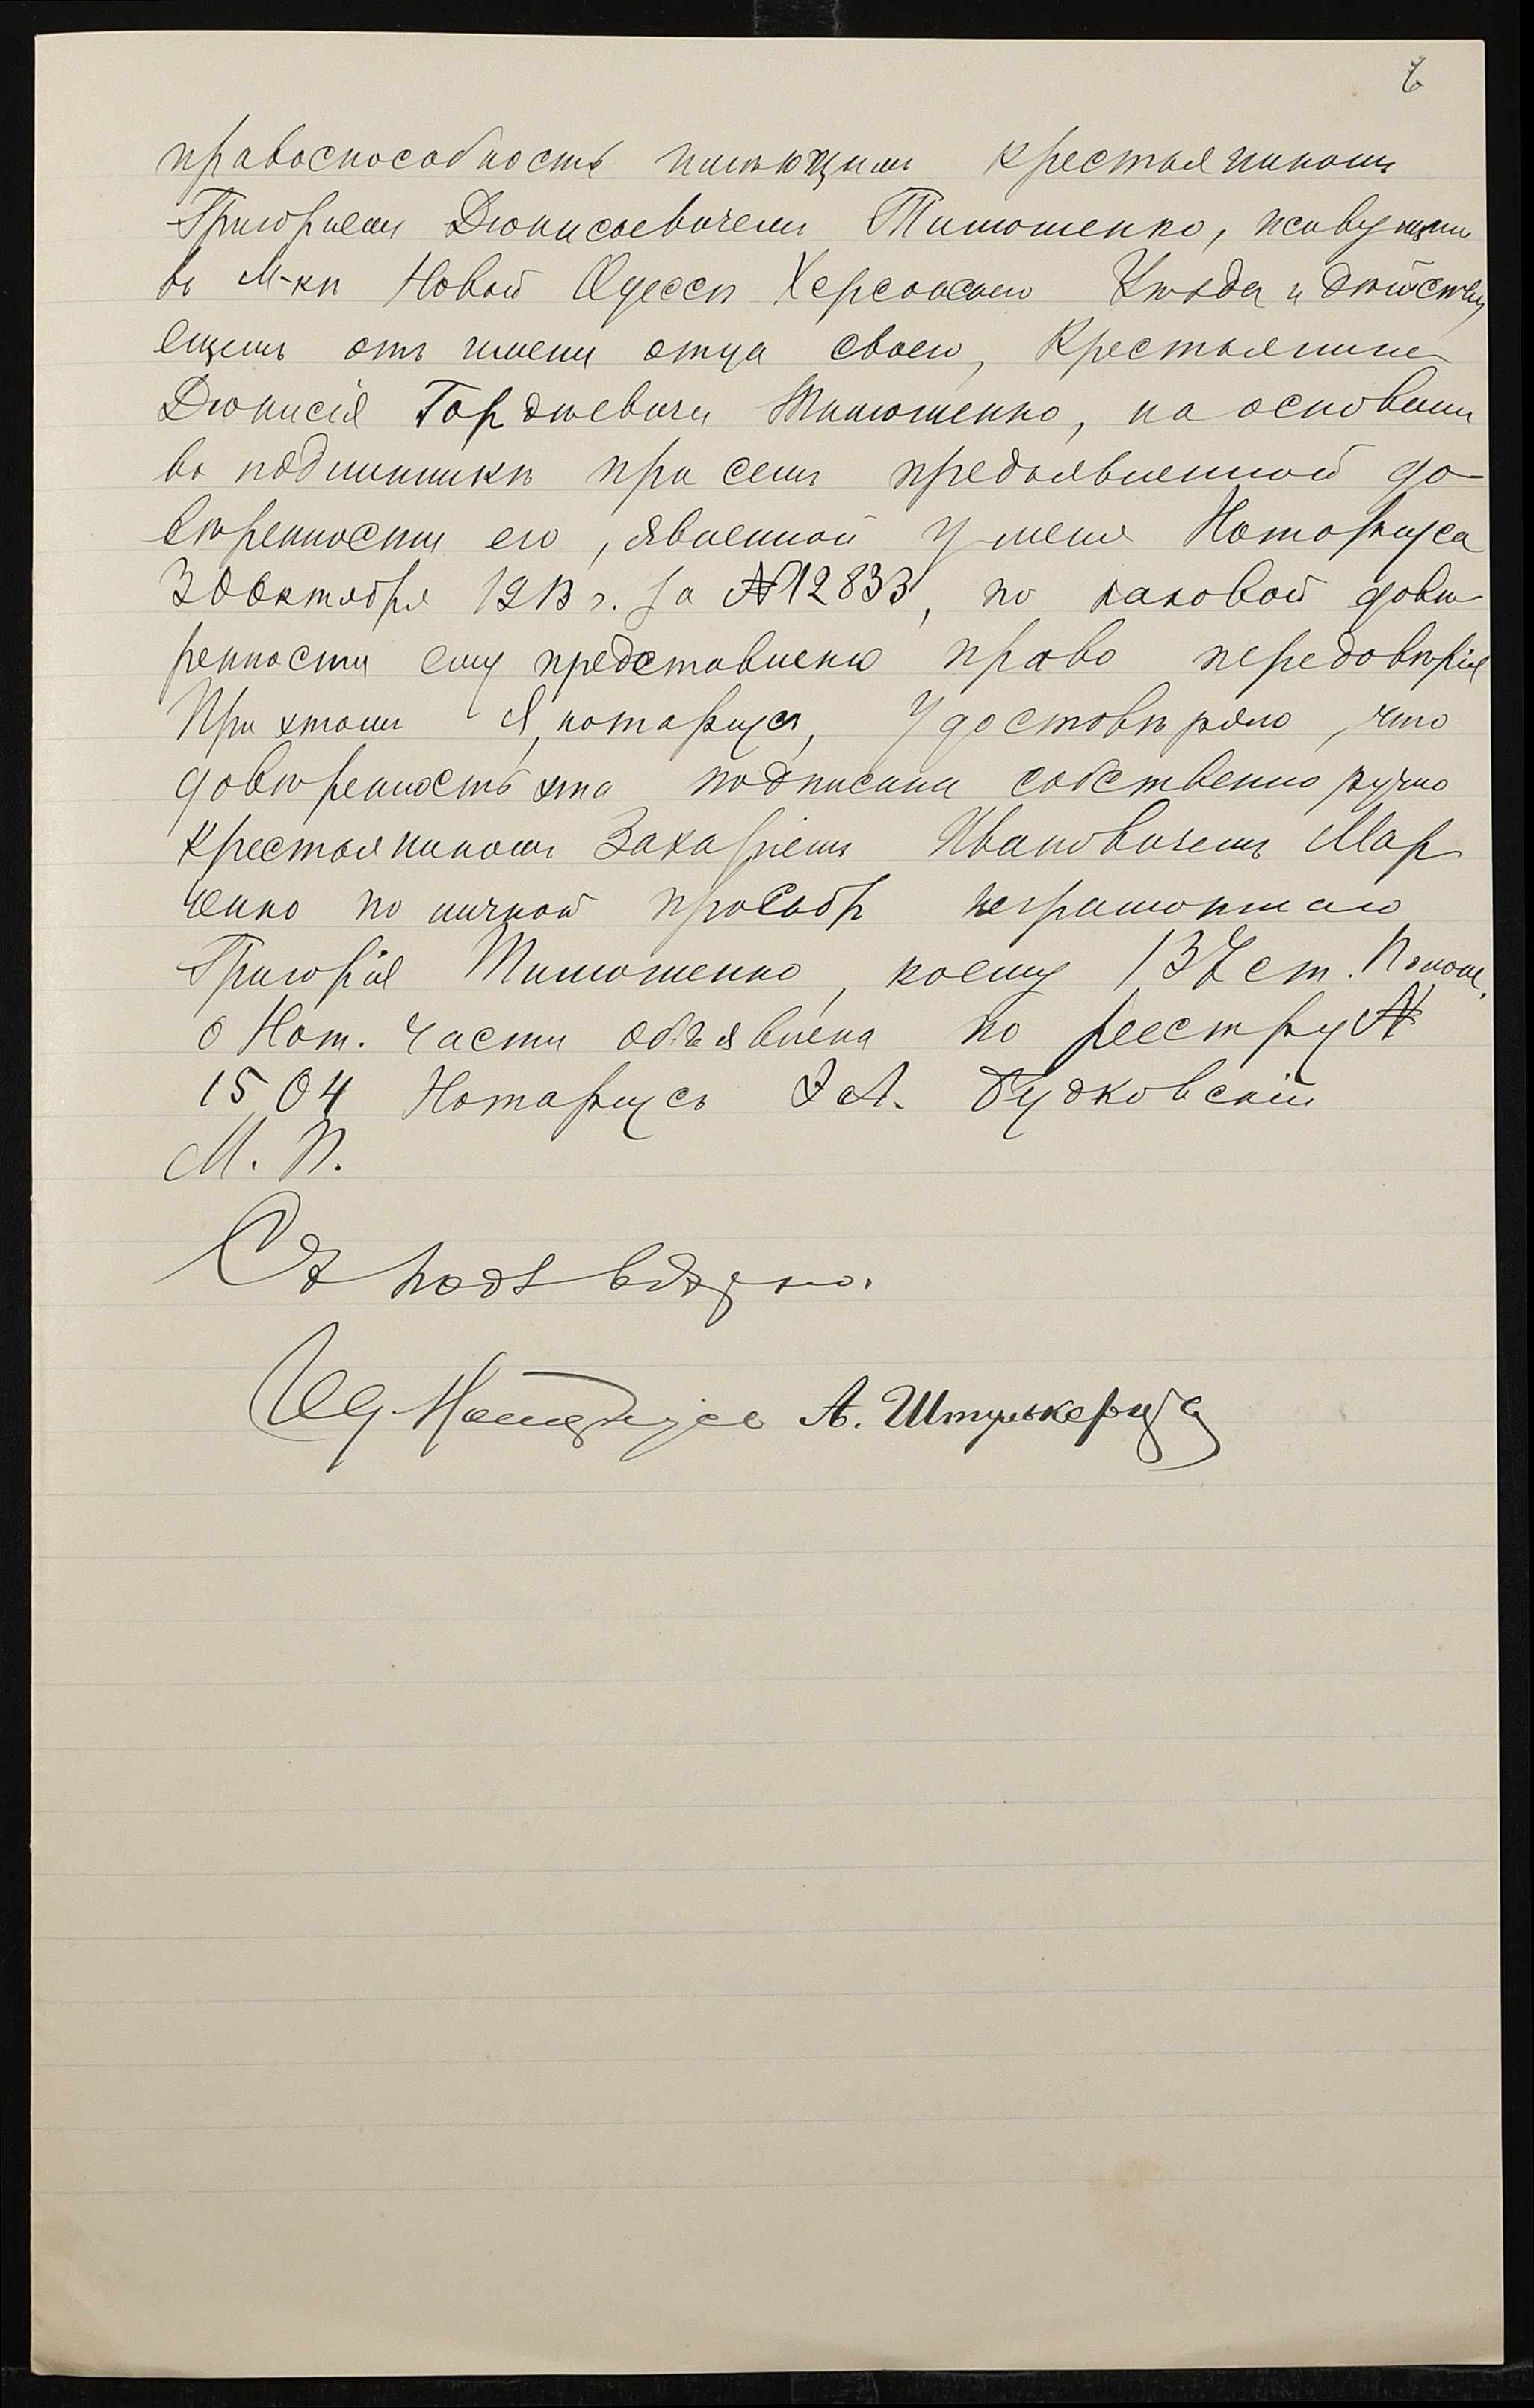 6
правоспособность имѣющимъ крестьяниномъ
Григоріемъ Діонисьевичемъ Тимошенко, живущимъ
въ м-кѣ Новой Одессѣ Херсонскаго Уѣзда и дѣйству
ющемъ отъ имени отца своего, Крестьянина
Діонисія Гордѣевича Тимошенко, на основаніи
въ подлинникѣ при семъ предъявленной до-
вѣренности его, явленной у меня Нотаріуса
30 Октября 1913 г. за № 12833, по каковой довѣ
ренности ему предоставлено право передовѣрія
При этомъ Я, нотаріусъ, удостовѣряю, что
довѣренность эта подписана собственноручно
крестьяниномъ Захаріемъ Ивановичемъ Мар
ченко по личной просьбѣ неграмотнаго
Григорія Тимошенко, коему 137 ст. Полож.
о Нот. Части объявлена по реестру №
1504 Нотаріусъ А. Будковскій
М. П.
Съ подл вѣрно.
Ид Нотаріуса А. Штулькерцъ